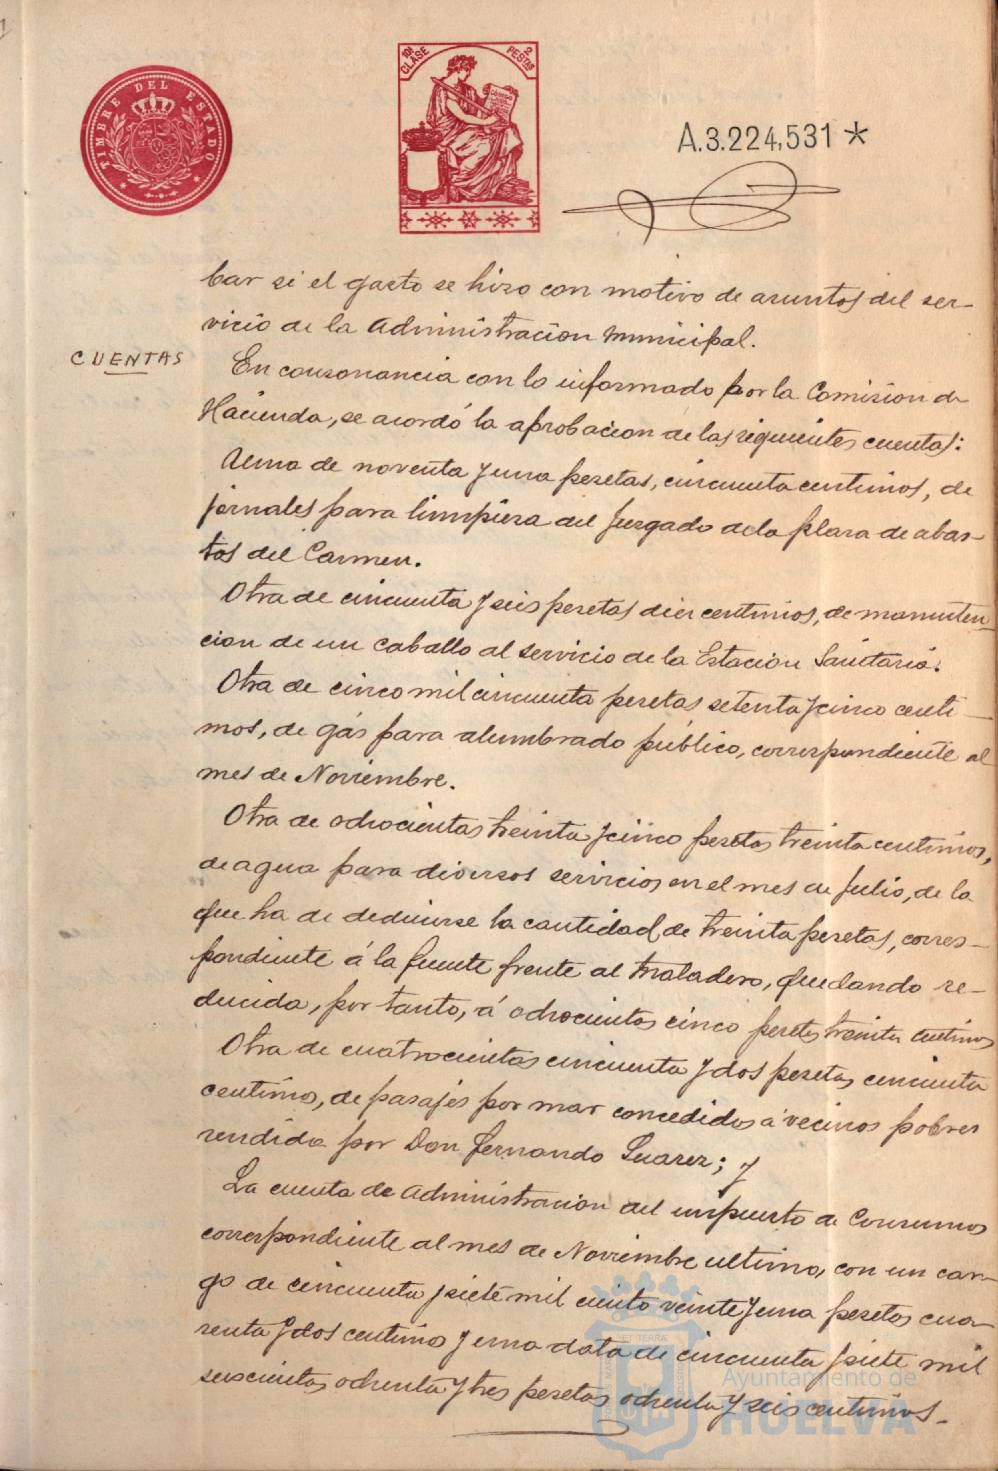 TIMBRE DEL ESTADO
10ª CLASE
2 PESTAS
A.3.224,531 *
bar si el gasto se hizo con motivo de asuntos del ser-
vicio de la Administracion Municipal.
CUENTAS
En consonancia con lo informado por la Comision de
Hacienda, se acordó la aprobacion de las siguientes cuentas:
Una de noventa y una pesetas, cincuenta centimos, de
jornales para limpieza del Juzgado de la plaza de abas-
tos del Carmen.
Otra de cincuenta y seis pesetas diez centimos, de manuten-
cion de un caballo al servicio de la Estacion Sanitaria.
Otra de cinco mil cincuenta pesetas setenta y cinco centi-
mos, de gas para alumbrado público, correspondiente al
mes de Noviembre.
Otra de ochocientas treinta y cinco pesetas treinta centimos,
de agua para diversos servicios en el mes de Julio, de la
que ha de deducirse la cantidad de treinta pesetas, corres-
pondiente á la fuente frente al Matadero, quedando re-
ducida, por tanto, á ochocientos cinco pesetas treinta centimos
Otra de cuatrocientas cincuenta y dos pesetas cincuenta
centimos, de pasajes por mar concedidos a vecinos pobres
rendida por Don Fernando Suarez; y
La cuenta de Administracion del impuesto de Consumos
correspondiente al mes de Noviembre ultimo, con un car-
go de cincuenta y siete mil ciento veinte y una pesetas cua-
renta y dos centimos y una data de cincuenta y siete mil
seiscientas ochenta y tres pesetas ochenta y seis centimos.-
Ayuntamiento de
HUELVA